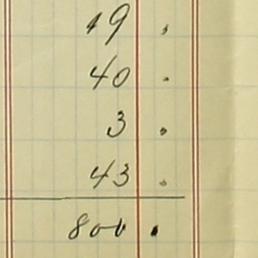 19 .
40 .
3 .
43 .
800 .